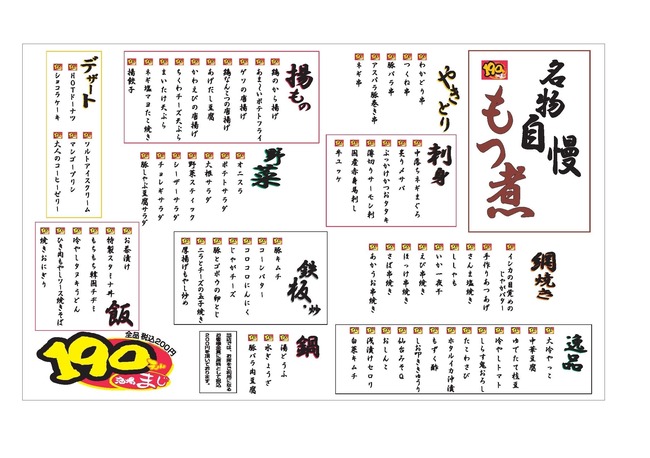 名物
自慢
もつ煮
やきとり
わかどり串
つくね串
豚バラ串
アスパラ豚巻き串
ネギ串
刺身
中落ちネギまぐろ
炙りメサバ
ぶっかけかつおタタキ
薄切りサーモン刺
国産赤身馬刺し
牛ユッケ
網焼き
インカの目覚めの
じゃがバター
手作りあつあげ
さんま塩焼き
ししゃも
いか一夜干
えび串焼き
ほっけ串焼き
さば串焼き
あかうお串焼き
逸品
大冷やっこ
中華豆腐
ゆでたて枝豆
冷やしトマト
しらす鬼おろし
たこわさび
ホタルイカ沖漬
もずく酢
叩ききゅうり
仙台みそQ
おしんこ
浅漬けセロリ
白菜キムチ
揚もの
鶏のから揚げ
あま~いポテトフライ
ゲソの唐揚げ
鶏なんこつの唐揚げ
あげだし豆腐
かわえびの唐揚げ
ちくわチーズ天ぷら
まいたけ天ぷら
ネギ塩マヨたこ焼き
揚餃子
野菜
オニスラ
ポテトサラダ
大根サラダ
野菜スティック
シーザーサラダ
チョレギサラダ
豚しゃぶ豆腐サラダ
鉄板・炒
豚キムチ
コーンバター
コロコロにんにく
じゃがチーズ
豚とゴボウの卵とじ
ニラとチーズの玉子焼き
厚揚げもやし炒め
鍋
湯どうふ
水ぎょうざ
豚バラ肉豆腐
デザート
HOTドーナツ
ショコラケーキ
ソルトアイスクリーム
マンゴープリン
大人のコーヒーゼリー
飯
お茶漬け
特製スタミナ丼
もちもち韓国チヂミ
冷やしタヌキうどん
ひき肉もやしソース焼きそば
焼きおにぎり
全品 税込200円
190
酒場 まじ